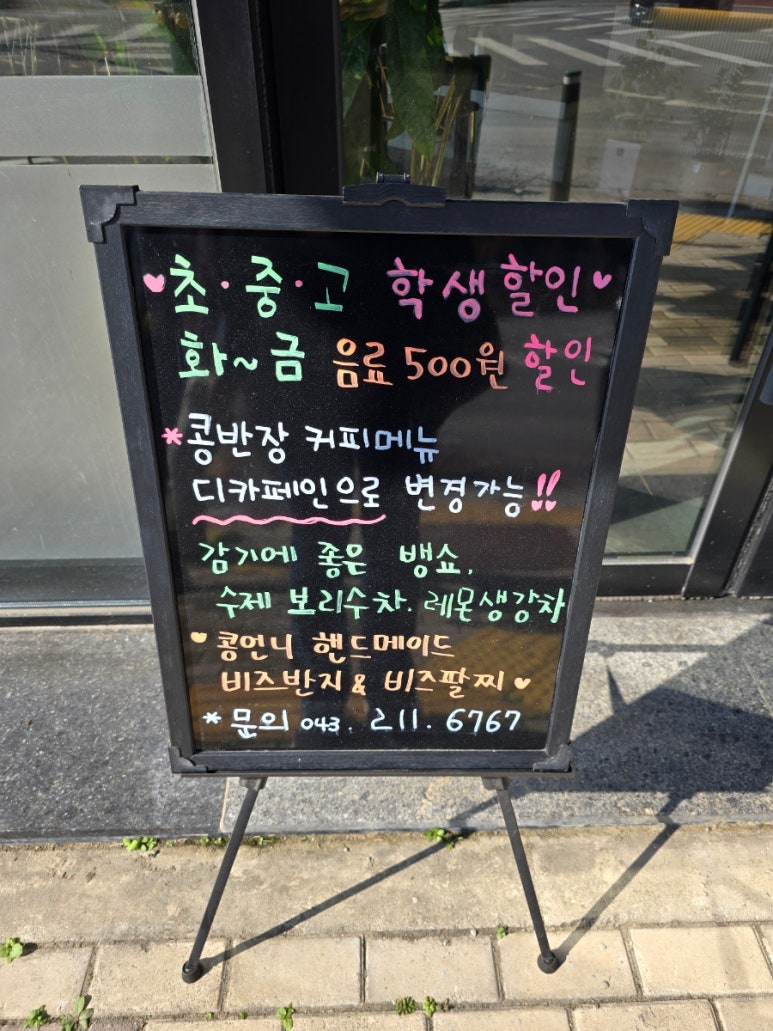 ♥초·중·고 학생할인♥
화~금 음료 500원 할인
*콩반장 커피메뉴
디카페인으로 변경가능!!
감기에 좋은 뱅쇼,
수제 보리수차. 레몬생강차
♥콩언니 핸드메이드
비즈반지 & 비즈팔찌♥
*문의 043. 211. 6767